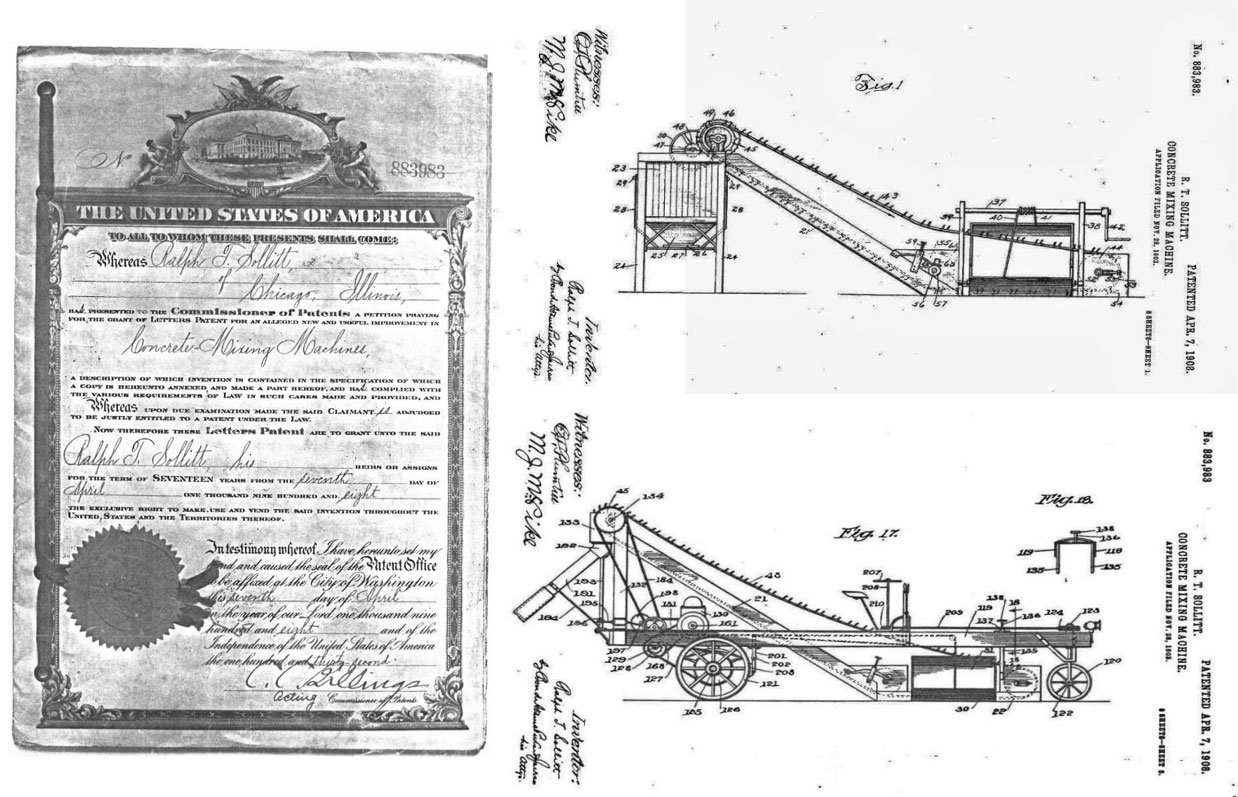 No
883983
THE UNITED STATES OF AMERICA
TO ALL TO WHOM THESE PRESENTS SHALL COME:
Whereas Ralph T. Sollitt,
of
Chicago, Illinois,
HAS PRESENTED TO THE Commissioner of Patents A PETITION PRAYING
FOR THE GRANT OF LETTERS PATENT FOR AN ALLEGED NEW AND USEFUL IMPROVEMENT IN
Concrete-Mixing Machines,
A DESCRIPTION OF WHICH INVENTION IS CONTAINED IN THE SPECIFICATION OF WHICH
A COPY IS HEREUNTO ANNEXED AND MADE A PART HEREOF, AND HAS COMPLIED WITH
THE VARIOUS REQUIREMENTS OF LAW IN SUCH CASES MADE AND PROVIDED, AND
Whereas UPON DUE EXAMINATION MADE THE SAID CLAIMANT is ADJUDGED
TO BE JUSTLY ENTITLED TO A PATENT UNDER THE LAW.
NOW THEREFORE THESE Letters Patent ARE TO GRANT UNTO THE SAID
Ralph T. Sollitt, his HEIRS OR ASSIGNS
FOR THE TERM OF SEVENTEEN YEARS FROM THE seventh DAY OF
April ONE THOUSAND NINE HUNDRED AND eight
THE EXCLUSIVE RIGHT TO MAKE, USE AND VEND THE SAID INVENTION THROUGHOUT THE
UNITED STATES AND THE TERRITORIES THEREOF.
In testimony whereof I have hereunto set my
hand and caused the seal of the Patent Office
to be affixed at the City of Washington
this seventh day of April
in the year of our Lord one thousand nine
hundred and eight and of the
Independence of the United States of America
the one hundred and thirty-second.
C. C. Billings
Acting Commissioner of Patents
No. 883,983.
R. T. SOLLITT.
CONCRETE MIXING MACHINE.
APPLICATION FILED NOV. 23, 1903.
PATENTED APR. 7, 1908.
8 SHEETS—SHEET 1.
Fig. 1
49
46
48
47
45
23
29
29
28
28
25
27
26
24
24
21
143
37
39
40
41
38
42
44
59
55
56
57
54
Witnesses:
Inventor:
Ralph T. Sollitt
his Attys.
No. 883,983
R. T. SOLLITT.
CONCRETE MIXING MACHINE.
APPLICATION FILED NOV. 23, 1903.
PATENTED APR. 7, 1908.
Fig. 17.
Fig. 18.
134
133
192
193
191
195
194
196
197
129
128
168
127
125
126
132
184
198
131
130
161
43
21
201
202
203
121
207
208
210
209
119
137
138
18
136
124
123
120
122
31
30
22
135
138
136
119
118
135
135
Witnesses:
Inventor:
Ralph T. Sollitt
his Attys.